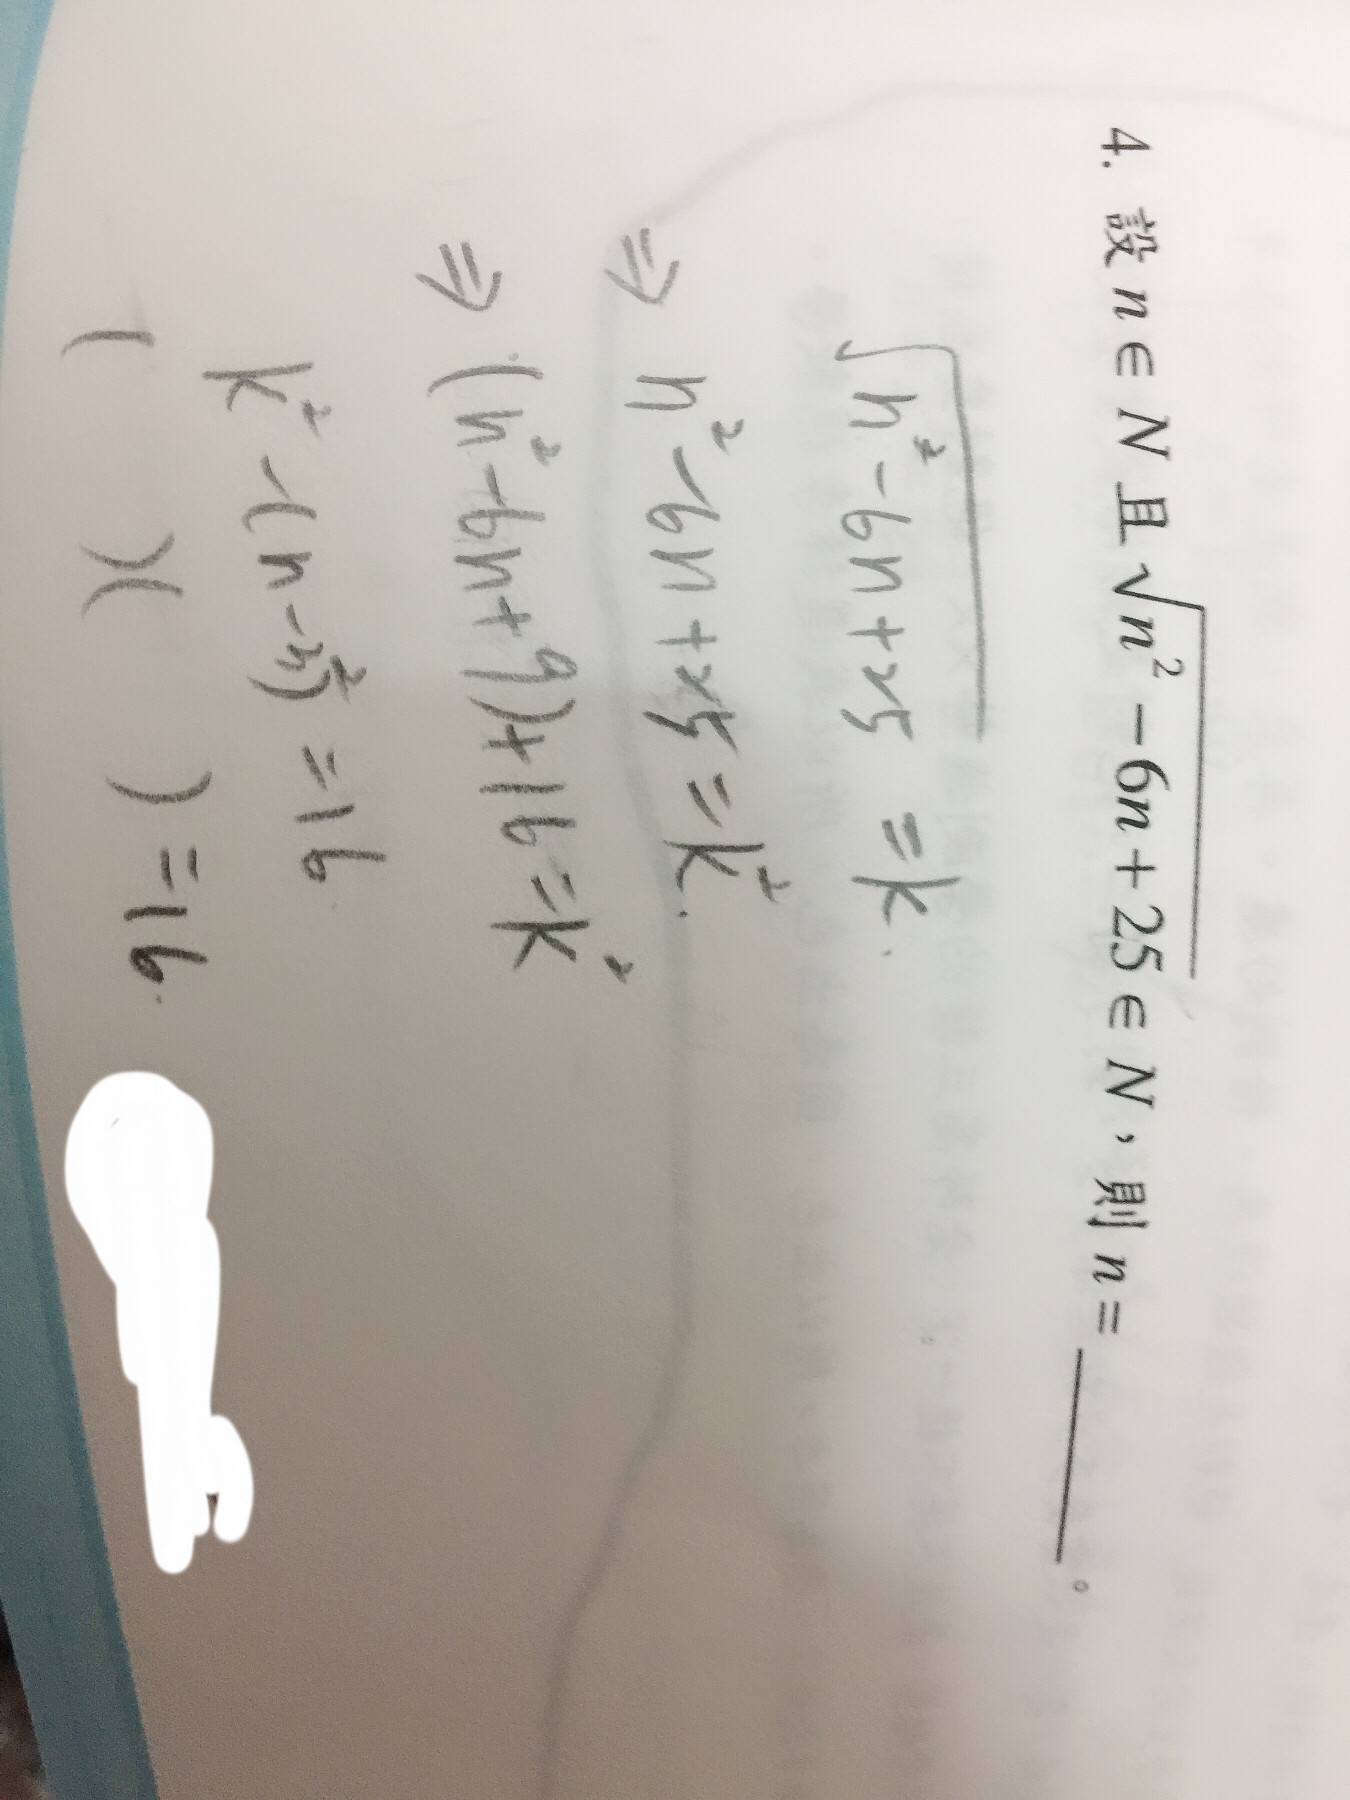 4. 設 n ∈ N 且 √(n² − 6n + 25) ∈ N，則 n = ______。
√(n² - 6n + 25) = k.
⇒ n² - 6n + 25 = k².
⇒ (n² - 6n + 9) + 16 = k²
k² - (n - 3)² = 16.
( )( ) = 16.